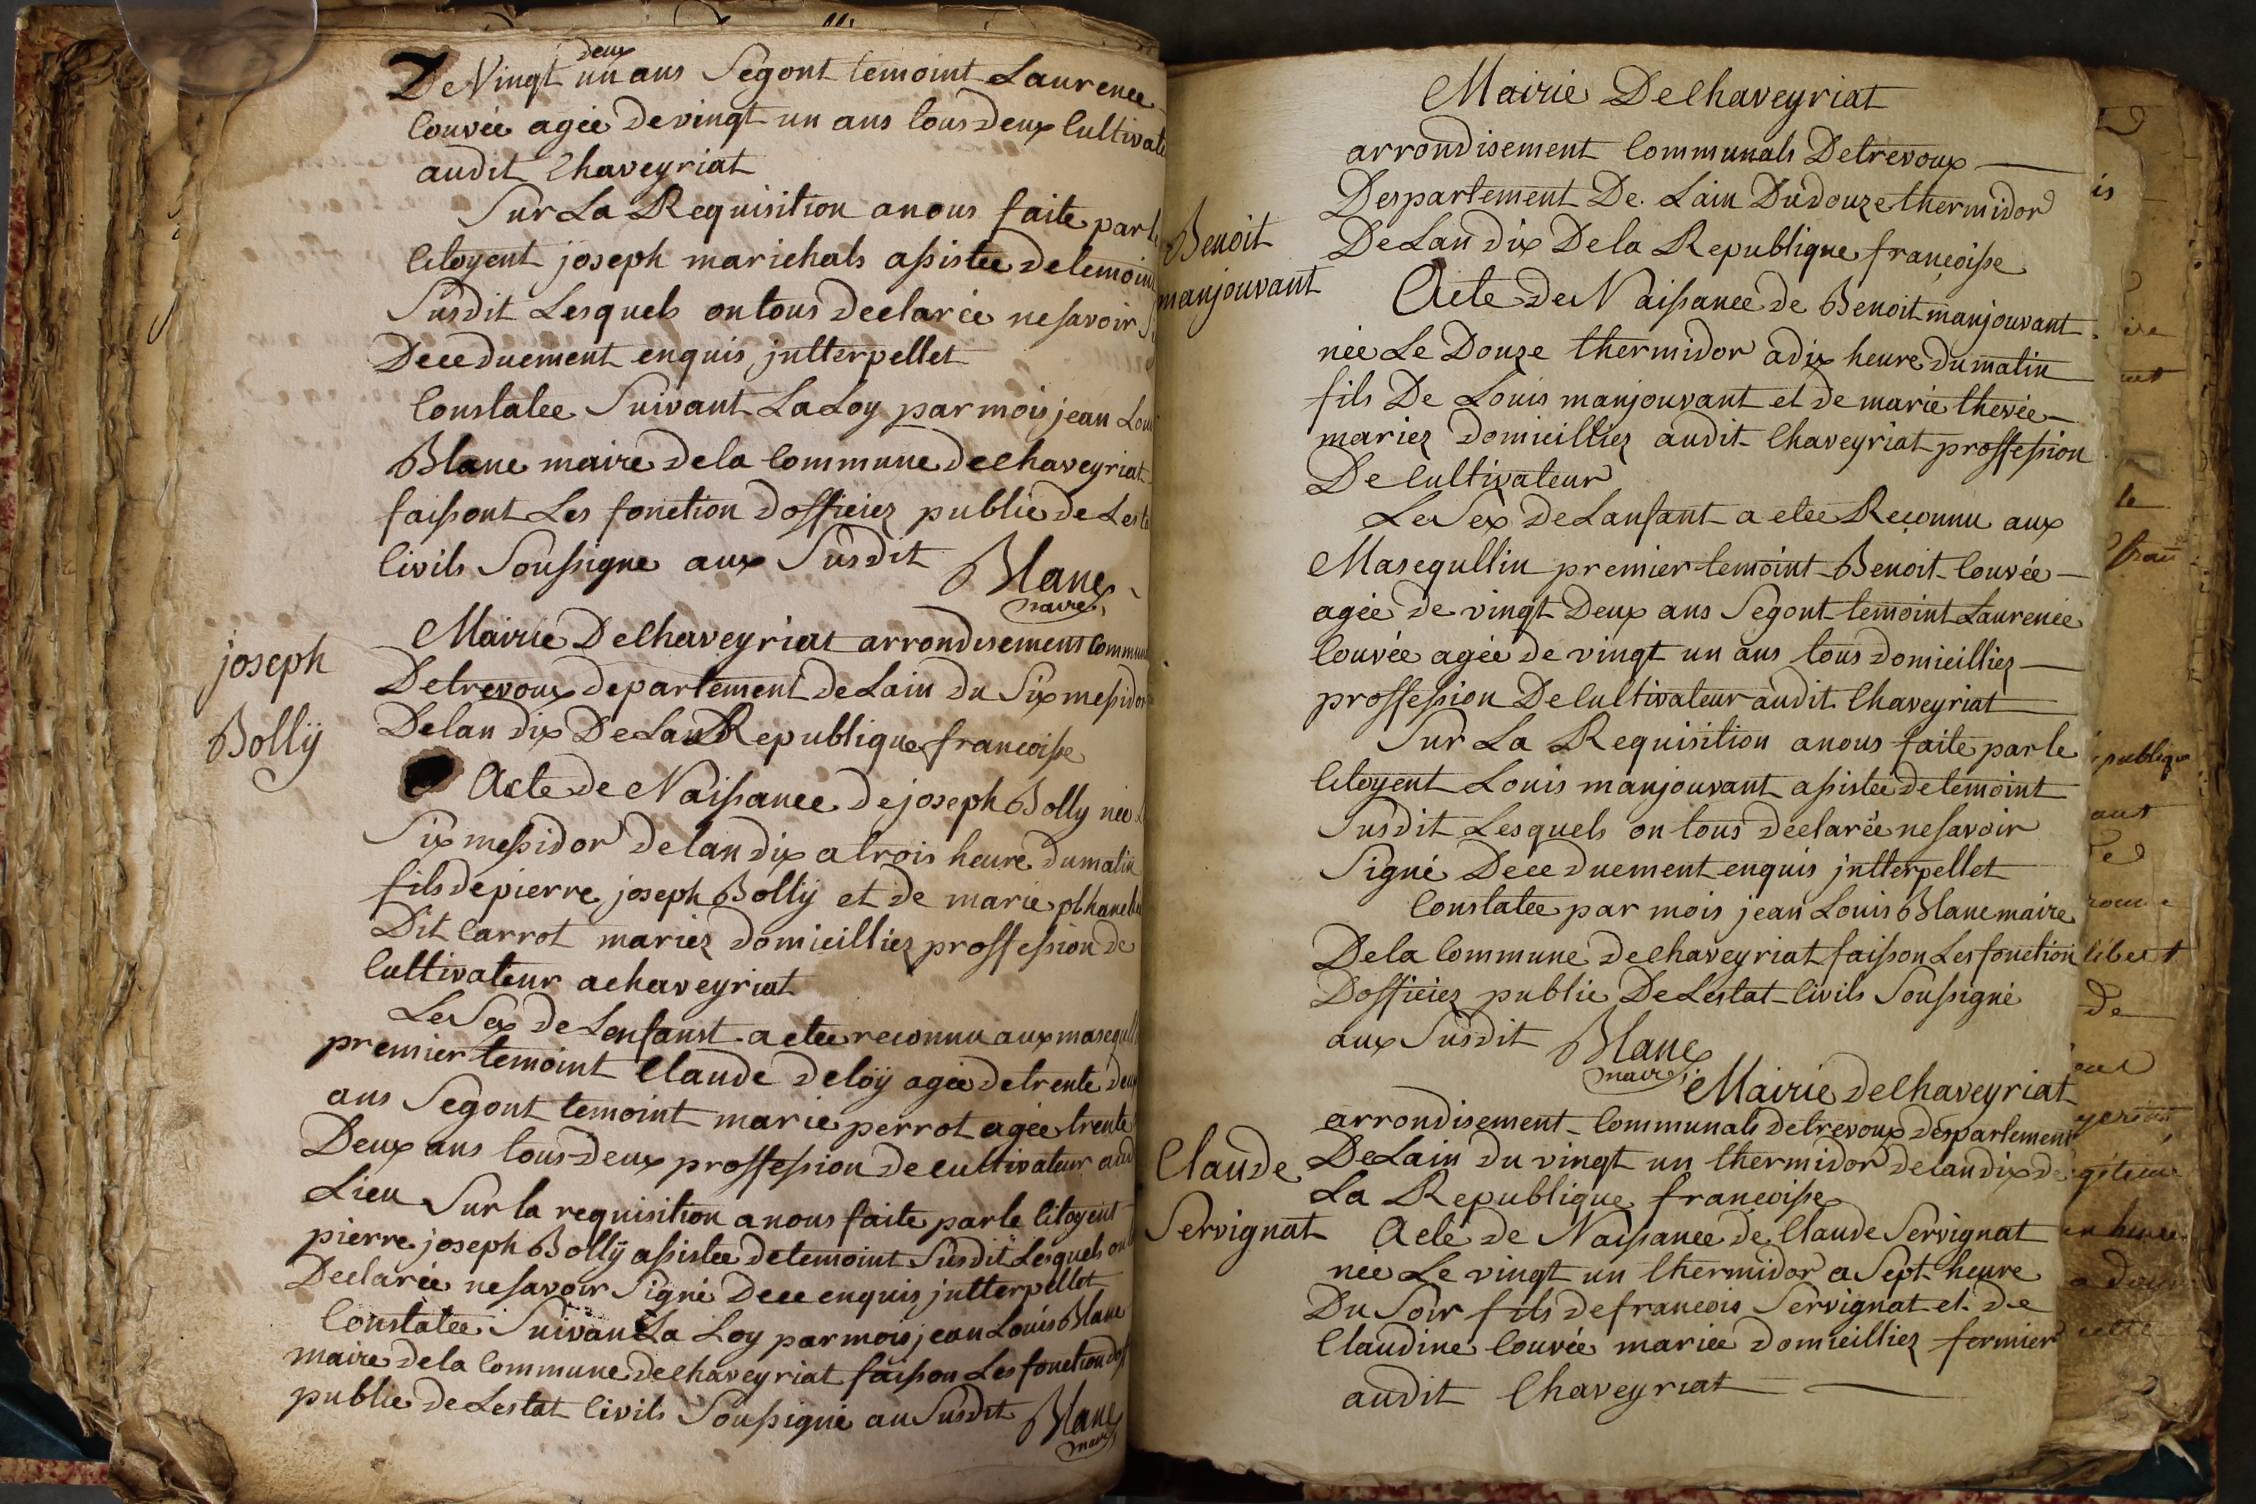 deux
De Vingt un ans Segont temoint Laurence
Couvée agée de vingt un ans tous deux Cultivate
audit Chaveyriat
Sur La Requisition a nous faite par le
Citoyent joseph marichals assistée de temoint
Susdit Lesquels on tous declarée ne savoir
Dece duement enquis jntterpellet
Constatee Suivant La Loy par mois jean Loui
Blanc maire de la Commune de Chaveyriat
faissont Les fonction dofficiez public de Lest
Civils Soussigne aux Susdit Blanc
maire
joseph
Bollÿ
Mairie De Chaveyriat arrondisement Commun
De trevoux departement de Lain du Six messidor
De lan dix De La Republique francoisse
Acte de Naissance de joseph Bolly née
Six messidor de lan dix a trois heure du matin
fils de pierre joseph Bollÿ et de marie
Dit Carrot mariez domicilliez proffession de
Cultivateur a chaveyriat
Le Sex de Lenfanst a etee reconnu aux masqull
premier temoint Claude deloÿ agée de trente deux
ans Segont temoint marie perrot agée trente
Deux ans tous deux proffession de cultivateur aud
Lieu Sur la requisition a nous faite par le Citoyent
pierre joseph Bollÿ assistee de temoint Susdit Lesquels on
Declarée ne savoir Signé Dece enquis jntterpellet
Constatée Suivant La Loy par mois jean Louis Blanc
maire de la Commune de Chaveyriat faisson Les fonction dof
public de Lestat Civils Soussigné au Susdit Blanc
maire
Mairie De Chaveyriat
arrondisement Communals De trevoux
Despartement De Lain Du douze thermidor
De Lan dix De la Republique françoisse
Benoit
manjouvant
Acte de Naissance de Benoit manjouvant
née Le Douze thermidor a dix heure du matin
fils De Louis manjouvant et de marie thevée
mariez domicilliez audit Chaveyriat proffession
De Cultivateur
Le Sex de Lanfant a etée Reconnu aux
Masequllin premier temoint Benoit Couvée
agée de vingt Deux ans Segont temoint Laurence
Couvée agée de vingt un ans tous domicilliez
proffession De Cultivateur audit Chaveyriat
Sur La Requisition a nous faite par le
Citoyent Louis manjouvant assistée de temoint
Susdit Lesquels on tous declarée ne savoir
Signé Dece duement enquis jntterpellet
Constatée par mois jean Louis Blanc maire
De la Commune de Chaveyriat faisson Les fonction
Dofficiez public De Lestat Civils Soussigné
aux Susdit Blanc
maire
Mairie de Chaveyriat
arrondisement Communals de trevoux despartement
De Lain du vingt un thermidor de lan dix de
La Republique francoisse
Claude
Servignat
Acte de Naissance de Claude Servignat
née Le vingt un thermidor a Sept heure
Du Soir fils de francois Servignat et de
Claudine Couvée mariée domicilliez fermier
audit Chaveyriat